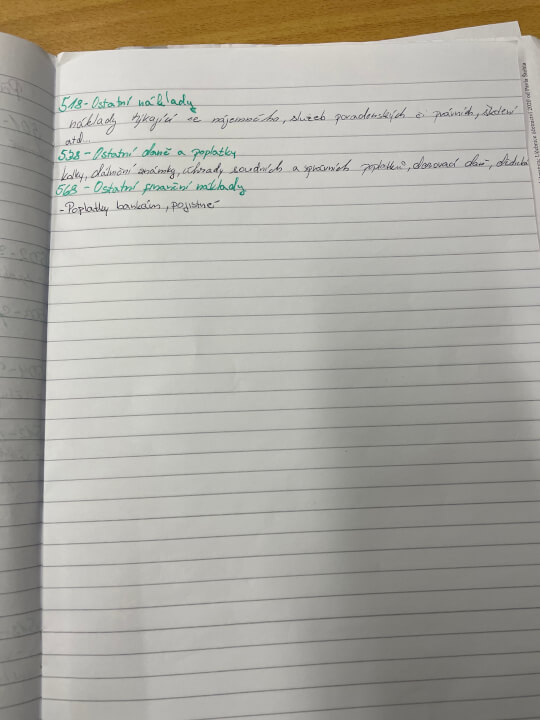 518 - Ostatní náklady
náklady týkající se nájemného, služeb poradenských či právních, školení
atd...
538 - Ostatní daně a poplatky
kolky, dálniční známky, úhrady soudních a správních poplatků, darovací daně, dědické
568 - Ostatní finanční náklady
- Poplatky bankám, pojistné